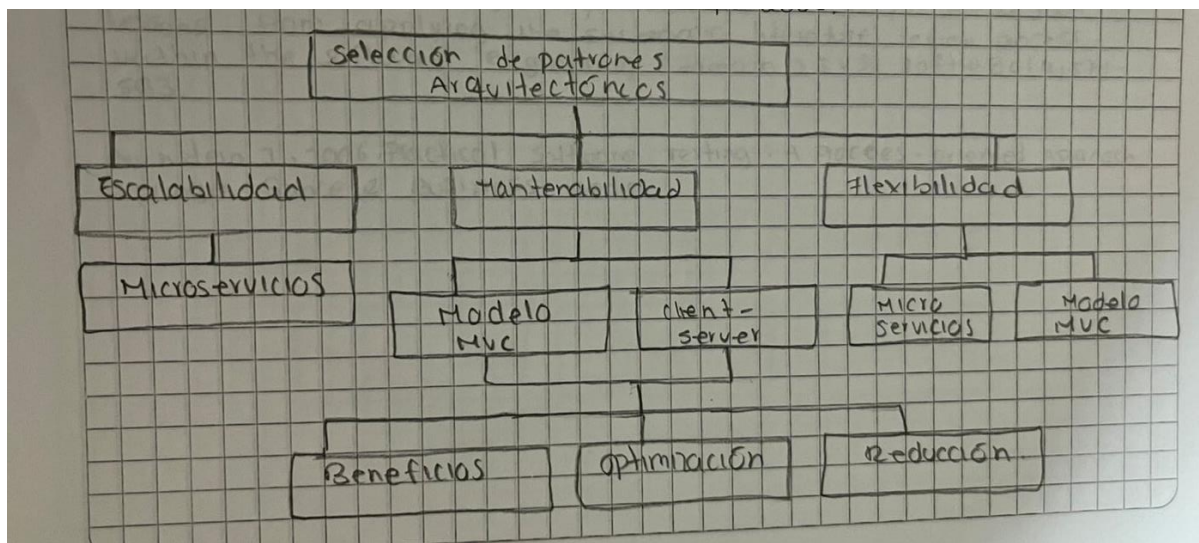 Selección de patrones
Arquitectónicos
Escalabilidad
Mantenabilidad
Flexibilidad
Microservicios
Modelo
MVC
client-
server
Micro
servicios
Modelo
MVC
Beneficios
optimización
Reducción